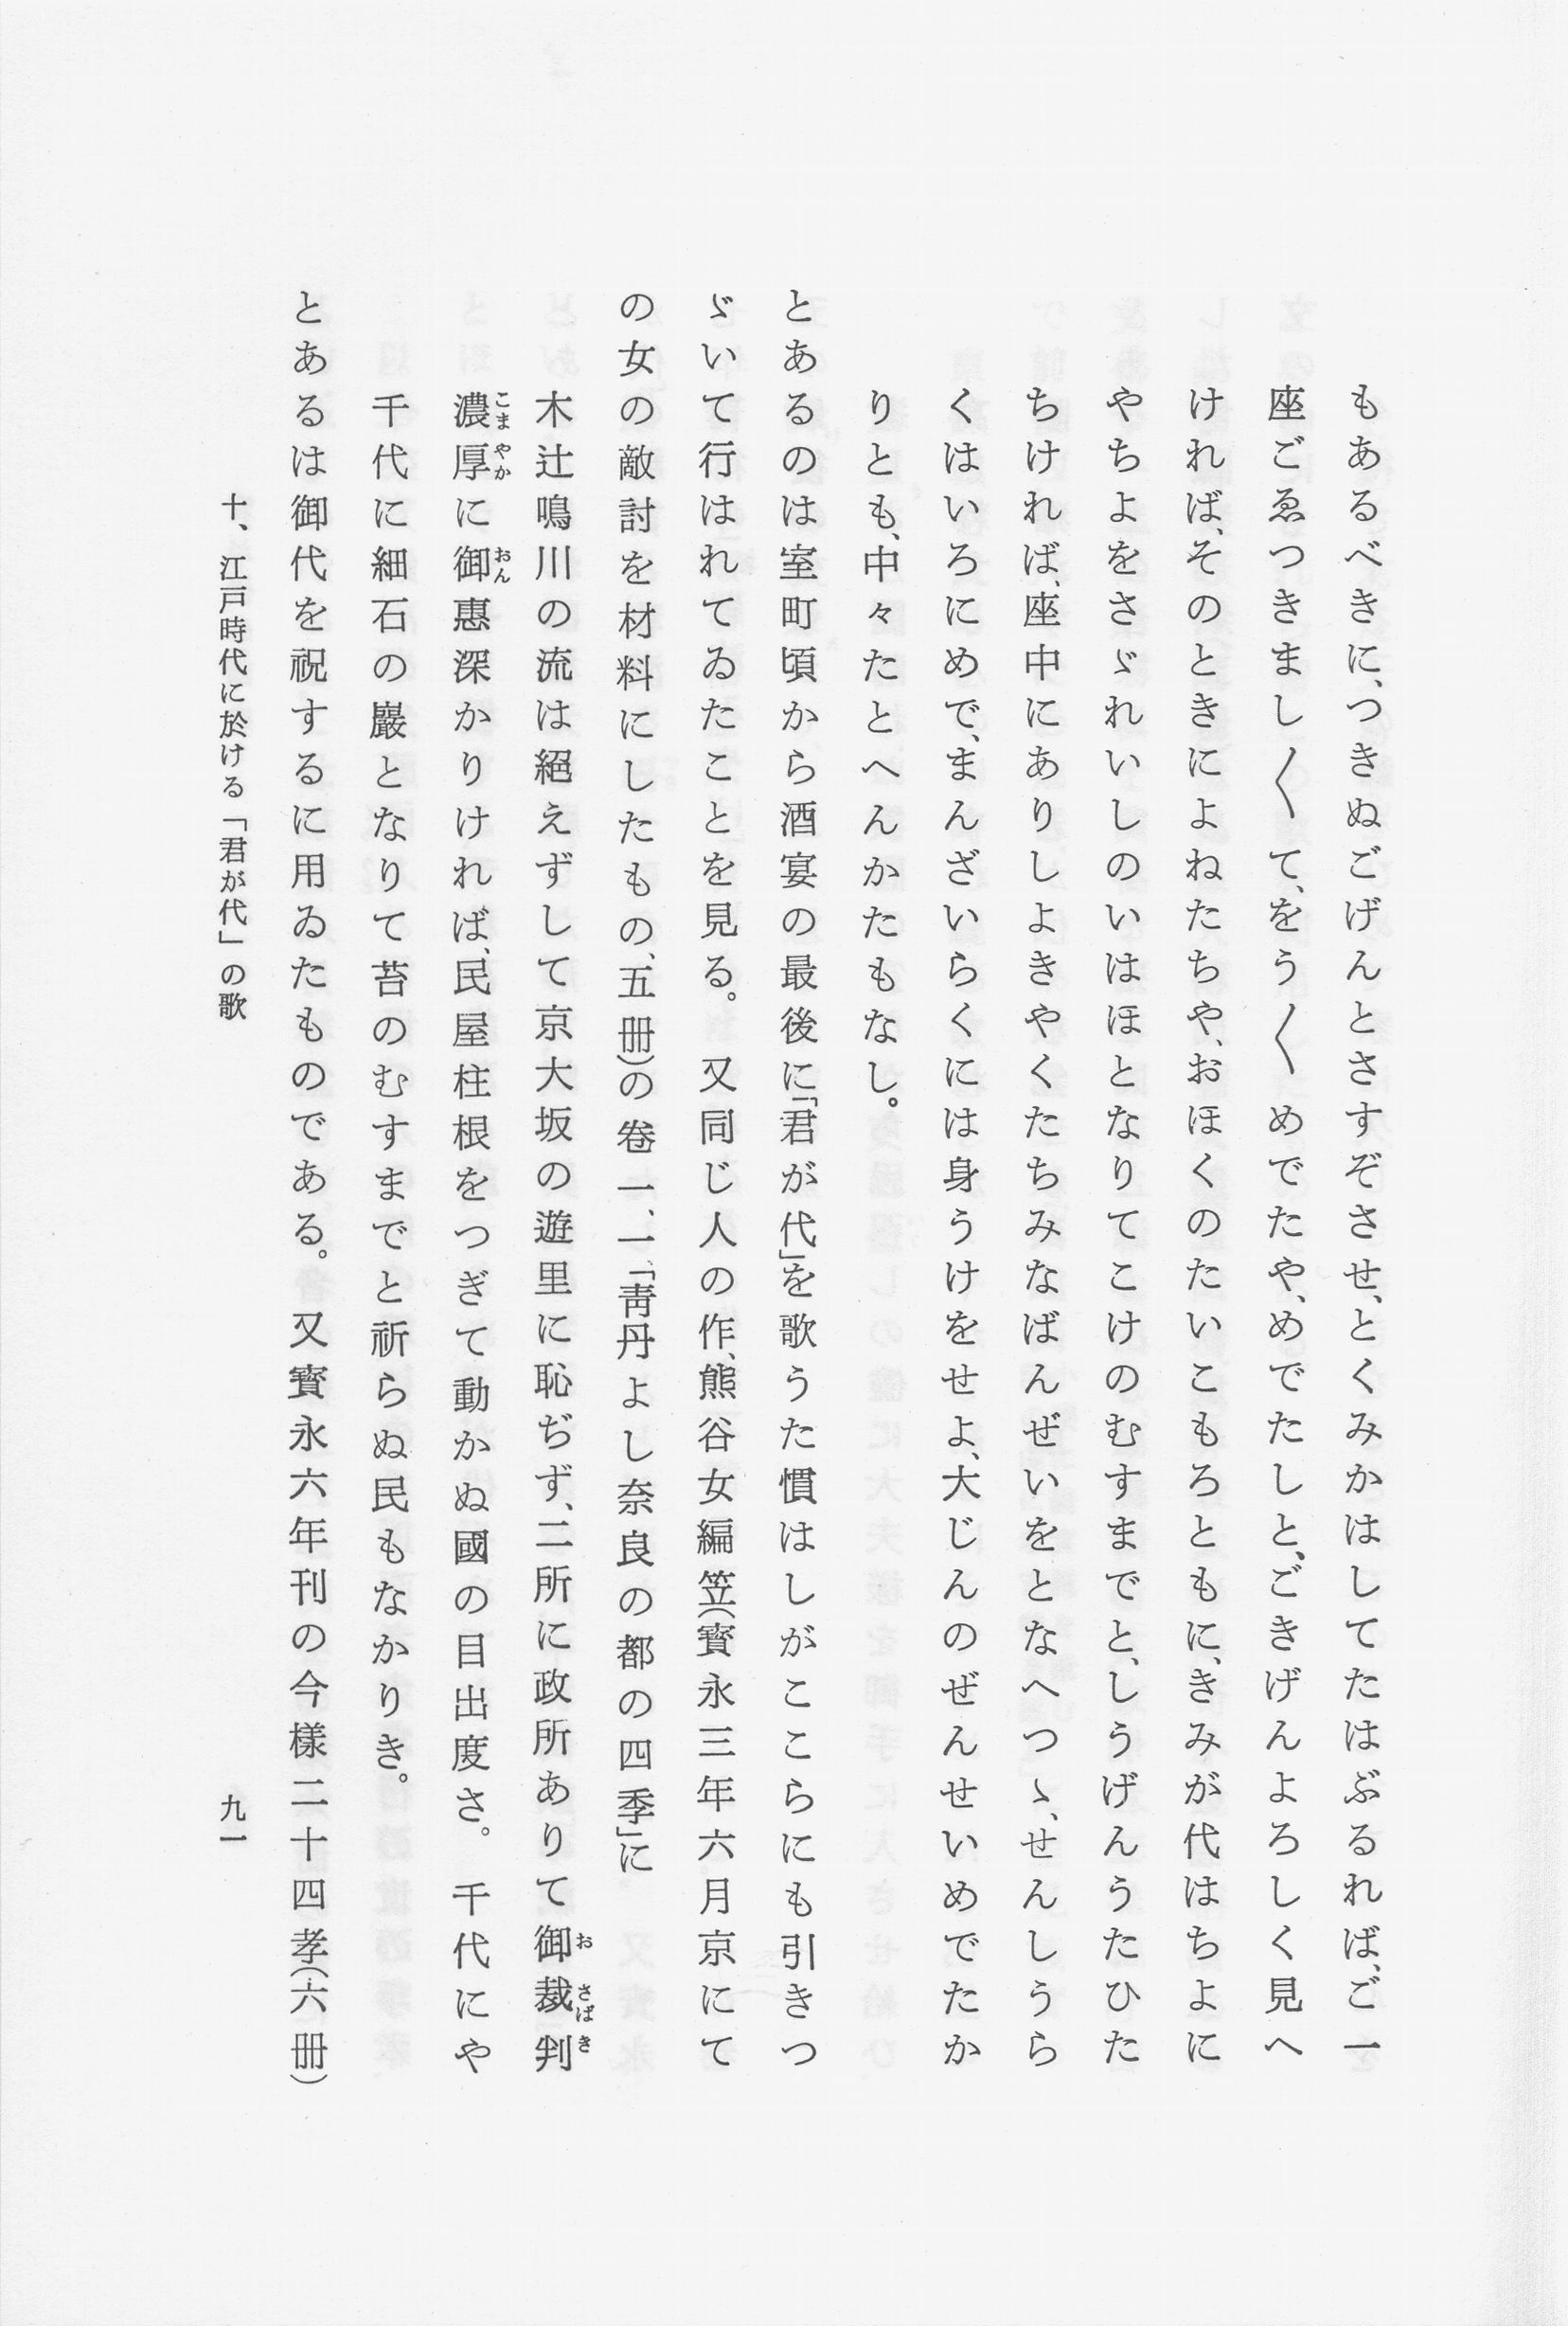 もあるべきに、つきぬごげんとさすぞさせ、とくみかはしてたはぶるれば、ご一
座ごゑつきまし〱て、をう〱めでたや、めでたしと、ごきげんよろしく見へ
ければ、そのときによねたちや、おほくのたいこもろともに、きみが代はちよに
やちよをさゞれいしのいはほとなりてこけのむすまでと、しうげんうたひた
ちければ、座中にありしよきやくたちみなばんぜいをとなへつゝ、せんしうら
くはいろにめで、まんざいらくには身うけをせよ、大じんのぜんせいめでたか
りとも、中々たとへんかたもなし。
とあるのは室町頃から酒宴の最後に「君が代」を歌うた慣はしがここらにも引きつ
ゞいて行はれてゐたことを見る。又同じ人の作、熊谷女編笠(寳永三年六月京にて
の女の敵討を材料にしたもの、五冊)の卷一、一「靑丹よし奈良の都の四季」に
木辻鳴川の流は絕えずして京大坂の遊里に恥ぢず、二所に政所ありて御裁判
濃厚に御惠深かりければ、民屋柱根をつぎて動かぬ國の目出度さ。千代にや
千代に細石の巖となりて苔のむすまでと祈らぬ民もなかりき。
とあるは御代を祝するに用ゐたものである。又寳永六年刊の今樣二十四孝(六冊)
十、江戸時代に於ける「君が代」の歌
九一